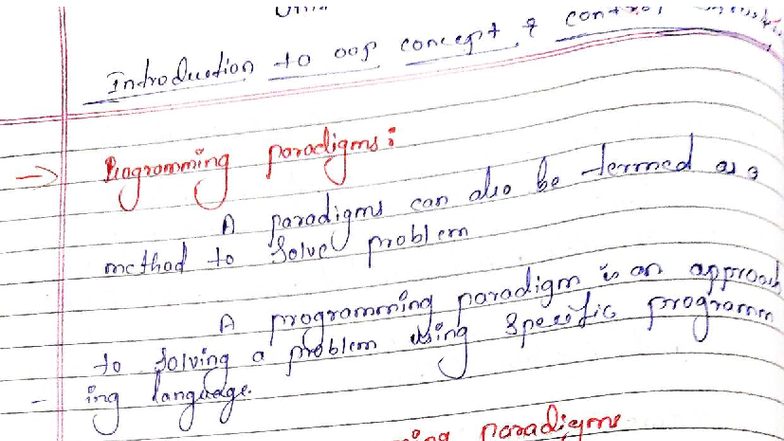 Introduction to oop concept & control
→ Programming paradigms:
A paradigms can also be termed as a
method to solve problem
A programming paradigm is an approach
to solving a problem using specific programm
- ing language.
paradigms